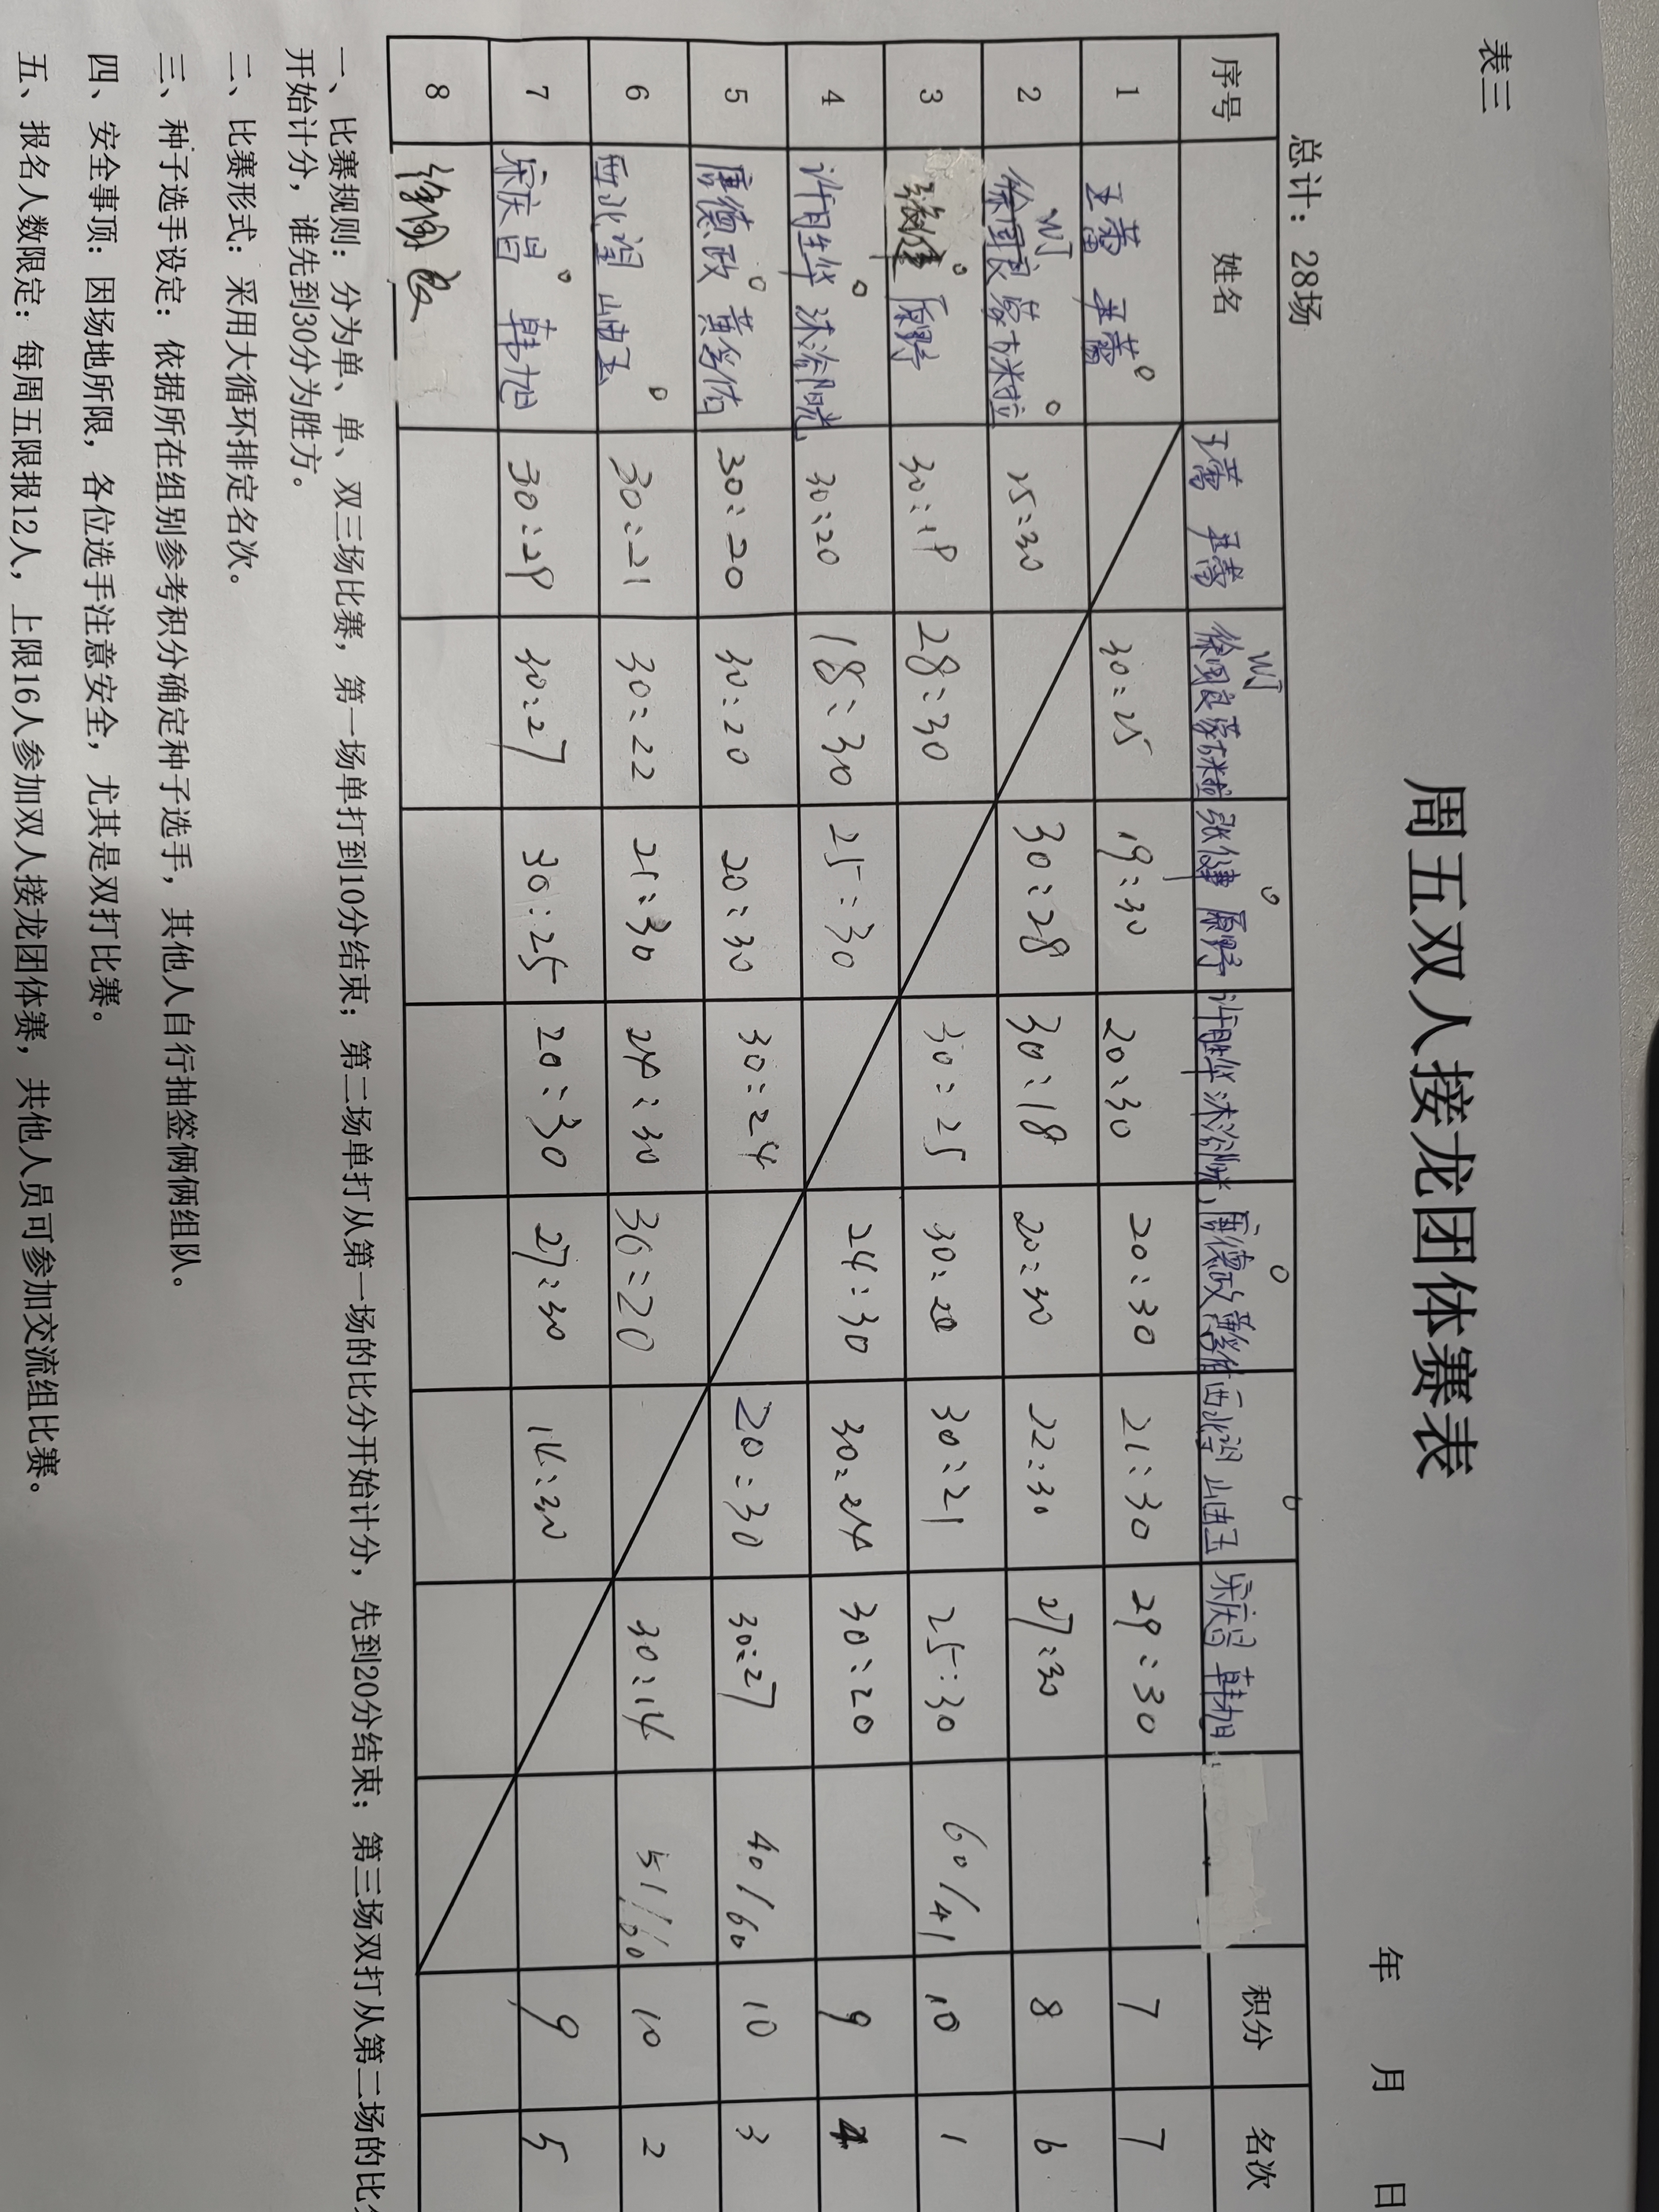 表三
周五双人接龙团体赛表
总计：28场 年 月 日
序号 姓名 王蕾 尹蕾 WJ 徐国良 蒙古米粒 张健 原野 许胜华 沐浴阳光 唐德政 西北望 山由玉 宋庆昌 韩旭 积分 名次
1 王蕾 尹蕾 30:25 19:30 20:30 20:30 21:30 29:30 7 7
2 WJ 徐国良 蒙古米粒 25:30 30:28 30:18 20:30 22:30 27:30 8 6
3 张健 原野 30:19 28:30 30:25 30:20 30:21 25:30 60/41 10 1
4 许胜华 沐浴阳光 30:20 18:30 25:30 24:30 30:24 30:20 9 4
5 唐德政 30:20 30:20 20:30 30:24 20:30 30:27 40/60 10 3
6 西北望 山由玉 30:21 30:22 21:30 24:30 30:20 30:14 51/60 10 2
7 宋庆昌 韩旭 30:29 30:27 30:25 20:30 27:30 14:30 9 5
8
一、比赛规则：分为单、单、双三场比赛，第一场单打到10分结束；第二场单打从第一场的比分开始计分，先到20分结束；第三场双打从第二场的比
开始计分，谁先到30分为胜方。
二、比赛形式：采用大循环排定名次。
三、种子选手设定：依据所在组别参考积分确定种子选手，其他人自行抽签俩俩组队。
四、安全事项：因场地所限，各位选手注意安全，尤其是双打比赛。
五、报名人数限定：每周五限报12人，上限16人参加双人接龙团体赛，共他人员可参加交流组比赛。